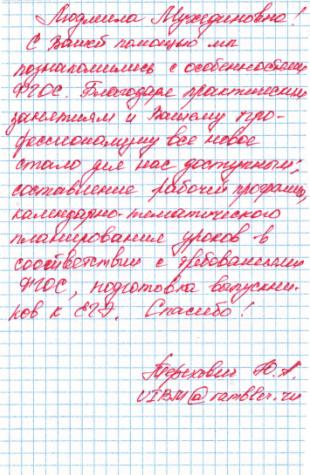 Людмила Мухединовна!
С Вашей помощью мы
познакомились с особенностями
ФГОС. Благодаря практическим
занятиям и Вашему про-
фессионализму все новое
стало для нас доступным;
составление рабочей программы,
календарно-тематического
планирования уроков в
соответствии с требованиями
ФГОС, подготовка выпускни-
ков к ЕГЭ. Спасибо!
Ю.А.